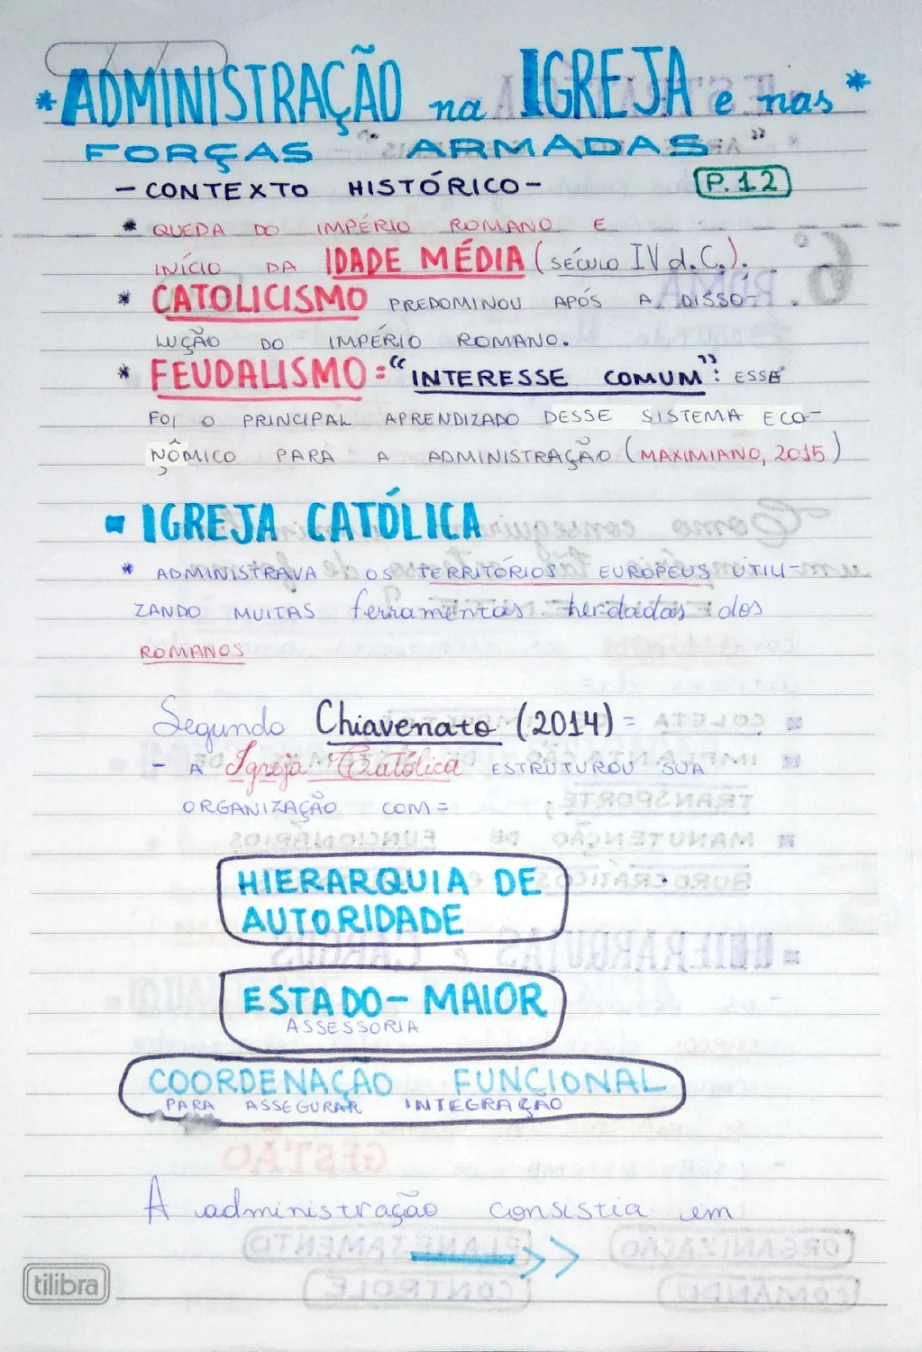 * ADMINISTRAÇÃO na IGREJA e nas *
FORÇAS "ARMADAS"
- CONTEXTO HISTÓRICO - P.12
* QUEDA DO IMPÉRIO ROMANO E
INÍCIO DA IDADE MÉDIA (SÉCULO IV d.C.).
* CATOLICISMO PREDOMINOU APÓS A DISSO-
LUÇÃO DO IMPÉRIO ROMANO.
* FEUDALISMO = "INTERESSE COMUM": ESSE
FOI O PRINCIPAL APRENDIZADO DESSE SISTEMA ECO-
NÔMICO PARA A ADMINISTRAÇÃO (MAXIMIANO, 2015)
- IGREJA CATÓLICA
* ADMINISTRAVA OS TERRITÓRIOS EUROPEUS UTILI-
ZANDO MUITAS ferramentas herdadas dos
ROMANOS
Segundo Chiavenato (2014) =
- A Igreja Católica ESTRUTUROU SUA
ORGANIZAÇÃO COM =
HIERARQUIA DE
AUTORIDADE
ESTADO-MAIOR
ASSESSORIA
COORDENAÇÃO FUNCIONAL
PARA ASSEGURAR INTEGRAÇÃO
A administração consistia em
tilibra